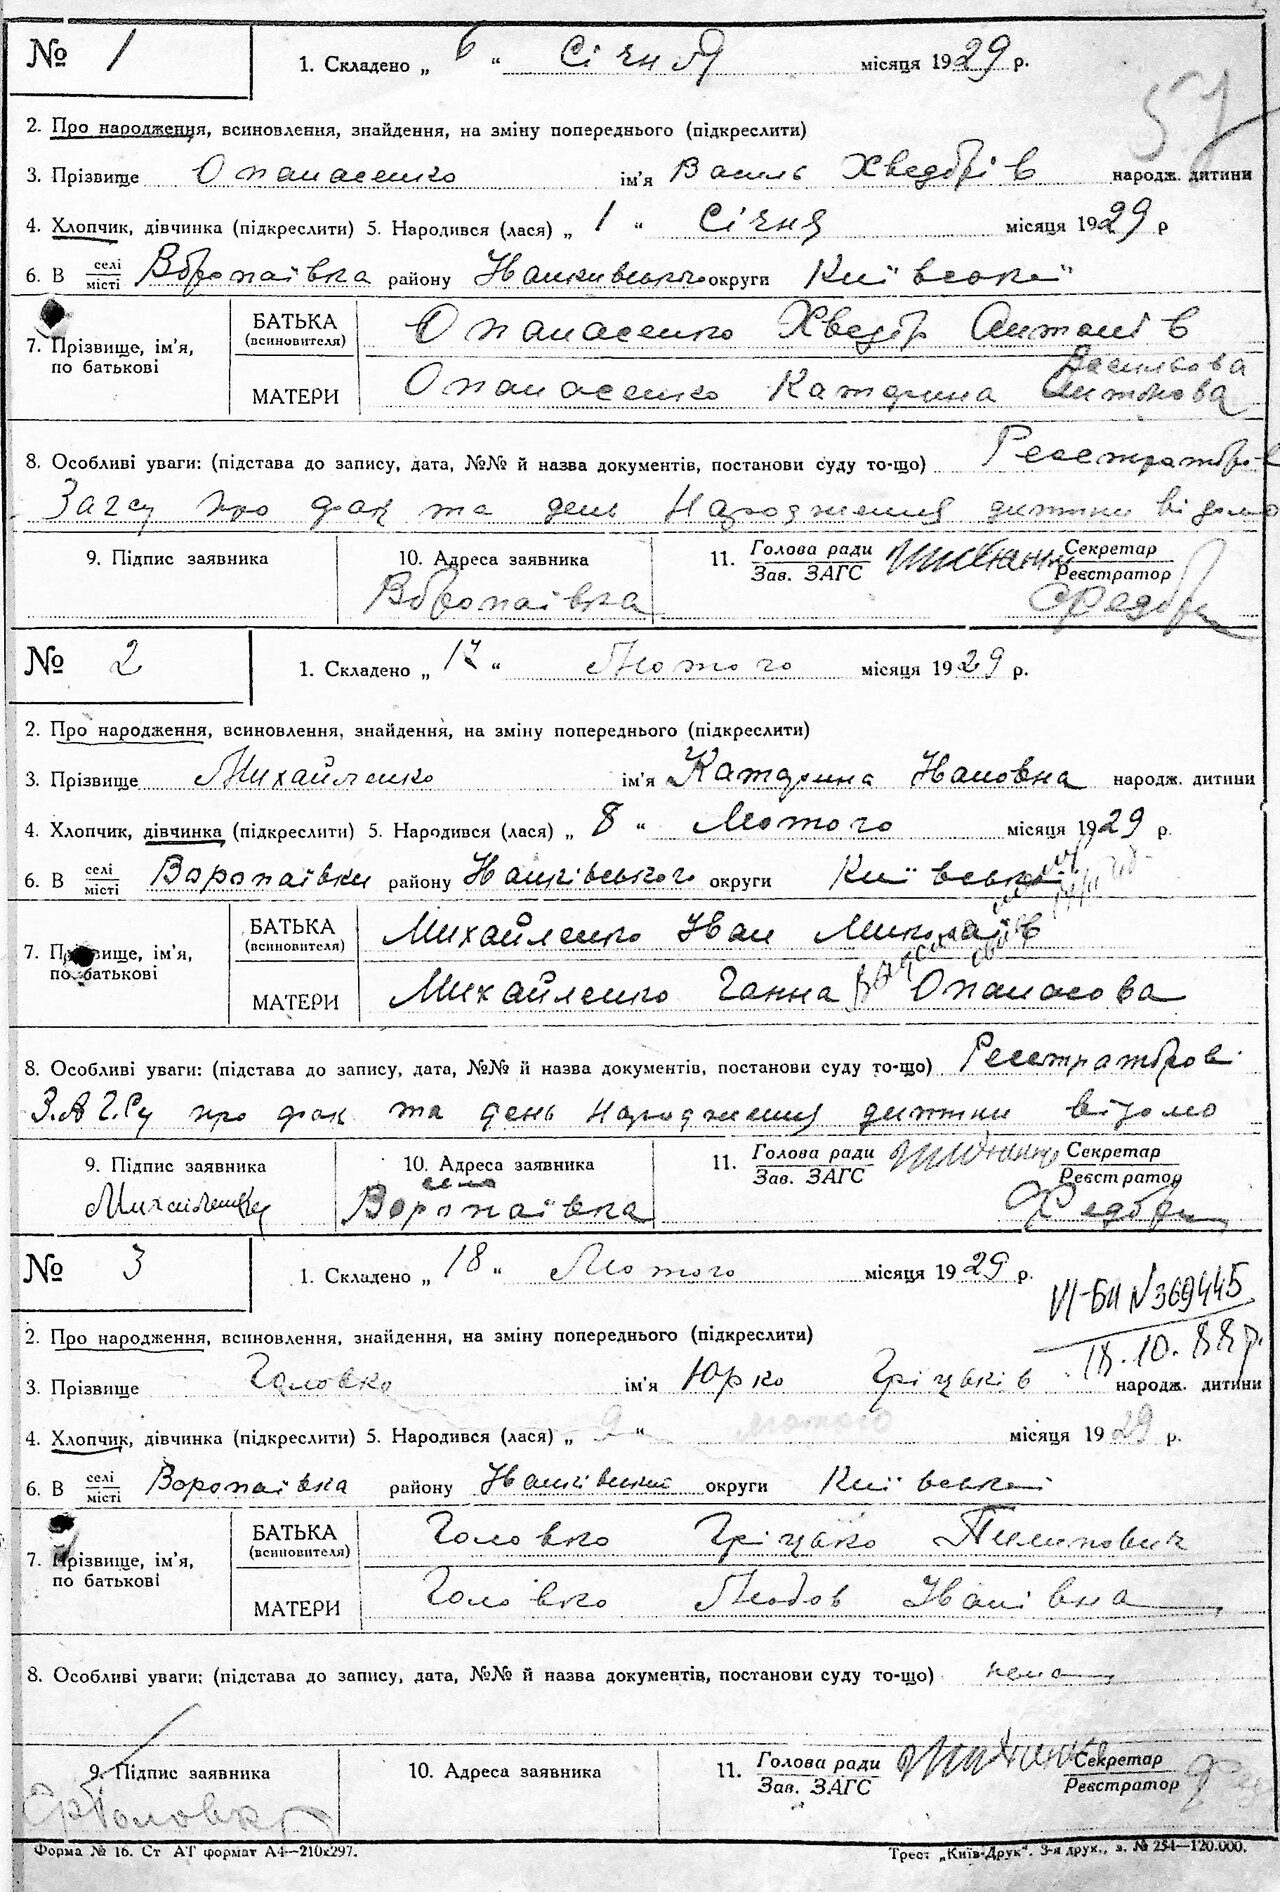 № 1 1. Складено „ 6 “ Січня місяця 1929 р.
57
2. Про народження, всиновлення, знайдення, на зміну попереднього (підкреслити)
3. Прізвище Опанасенко ім'я Василь Хведорів народж. дитини
4. Хлопчик, дівчинка (підкреслити) 5. Народився (лася) „ 1 “ Січня місяця 1929 р
6. В селі/місті Воропаївка району округи Київської
7. Прізвище, ім'я, по батькові БАТЬКА (всиновителя) Опанасенко Хведір Антонів
Василова
МАТЕРИ Опанасенко Катерина Антонова
8. Особливі уваги: (підстава до запису, дата, №№ й назва документів, постанови суду то-що) Реєстраторов
Загсу про фак та день народження дитини відомо
9. Підпис заявника 10. Адреса заявника 11. Голова ради/Зав. ЗАГС Секретар/Реєстратор
Воропаївка
№ 2 1. Складено „ 17 “ Лютого місяця 1929 р.
2. Про народження, всиновлення, знайдення, на зміну попереднього (підкреслити)
3. Прізвище Михайленко ім'я Катерина Івановна народж. дитини
4. Хлопчик, дівчинка (підкреслити) 5. Народився (лася) „ 8 “ Лютого місяця 1929 р.
6. В селі/місті Воропаївки району округи Київської
7. Прізвище, ім'я, по батькові БАТЬКА (всиновителя) Михайленко Іван Миколаїв
МАТЕРИ Михайленко Ганна Опанасова
8. Особливі уваги: (підстава до запису, дата, №№ й назва документів, постанови суду то-що) Реєстраторов
З.А.Г.Су про фак та день народження дитини відомо
9. Підпис заявника 10. Адреса заявника 11. Голова ради/Зав. ЗАГС Секретар/Реєстратор
Михайленко село Воропаївка
№ 3 1. Складено „ 18 “ Лютого місяця 1929 р.
VI-БК N369445
18.10.88р.
2. Про народження, всиновлення, знайдення, на зміну попереднього (підкреслити)
3. Прізвище Головко ім'я Юрко Гріцьків народж. дитини
4. Хлопчик, дівчинка (підкреслити) 5. Народився (лася) „ 9 “ лютого місяця 1929 р.
6. В селі/місті Воропаївка району округи Київської
7. Прізвище, ім'я, по батькові БАТЬКА (всиновителя) Головко Гріцько Пилипович
МАТЕРИ Головко Любов Іванівна
8. Особливі уваги: (підстава до запису, дата, №№ й назва документів, постанови суду то-що) нема
9. Підпис заявника 10. Адреса заявника 11. Голова ради/Зав. ЗАГС Секретар/Реєстратор
Головко
Форма № 16. Ст АТ формат А4—210х297. Трест „Київ-Друк“. 3-я друк., з. № 254—120.000.